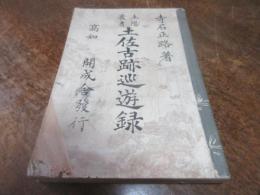 寺石正路著
土陽叢書
土佐古跡巡遊録
高知
開成舎發行